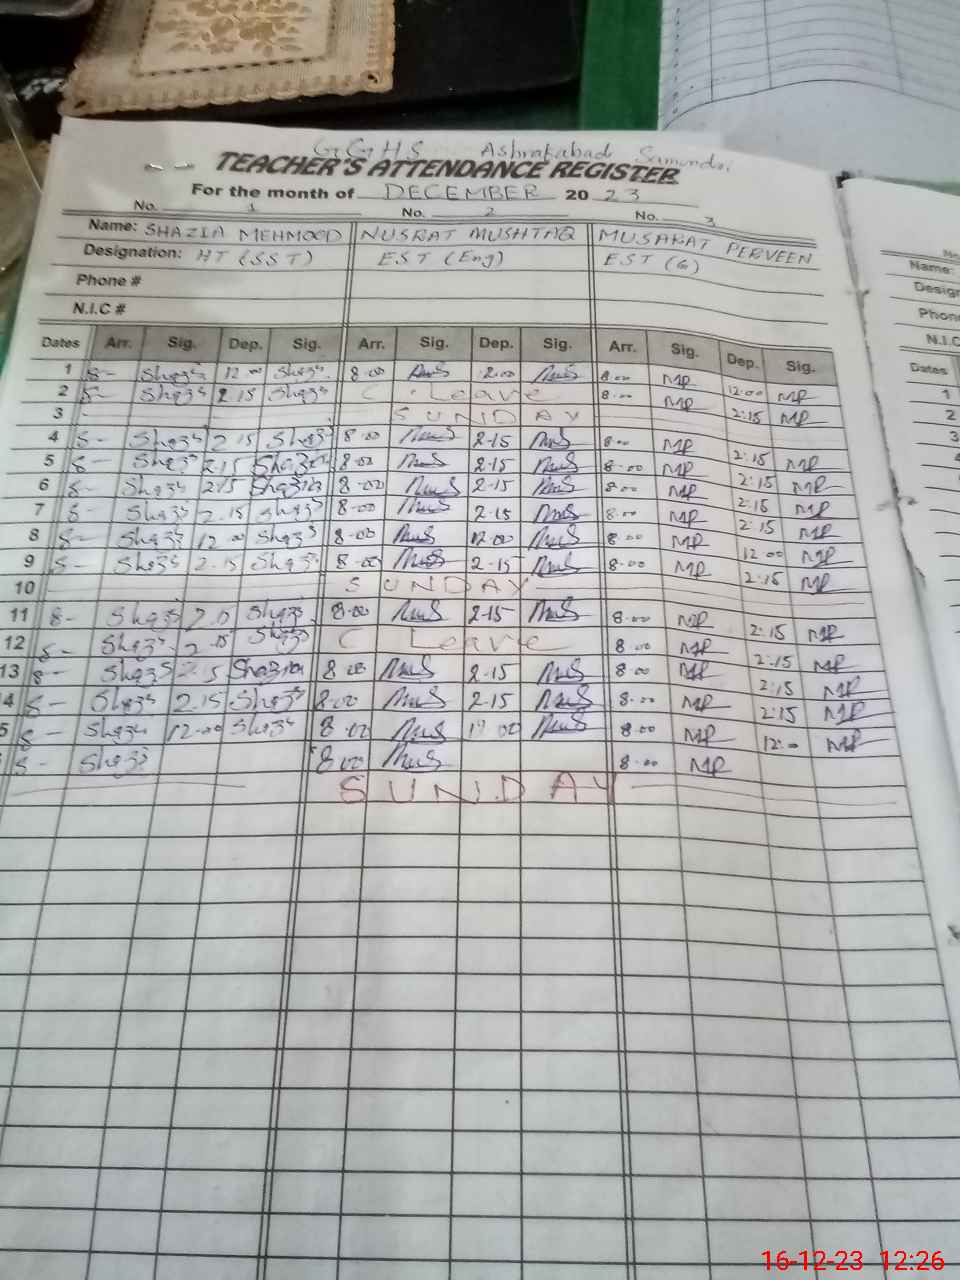 GGHS Ashrafabad Samundri
TEACHER'S ATTENDANCE REGISTER
For the month of DECEMBER 20 23
No. 1 No. 2 No. 3
Name: SHAZIA MEHMOOD NUSRAT MUSHTAQ MUSARAT PERVEEN
Designation: HT (SST) EST (Eng) EST (G)
Phone #
N.I.C #
Dates Arr. Sig. Dep. Sig. Arr. Sig. Dep. Sig. Arr. Sig. Dep. Sig.
1 8- 12 00 8-00 12-00 8-00 MP 12-00 MP
2 8- 2 15 C. Leave 8-00 MP 2:15 MP
3 SUNDAY
4 8- 2 15 8-00 2-15 8-00 MP 2:15 MP
5 8- 2.15 8-00 2-15 8-00 MP 2:15 MP
6 8- 2.15 8-00 2-15 8-00 MP 2:15 MP
7 8- 2.15 8-00 2-15 8-00 MP 2:15 MP
8 8- 12 00 8-00 12-00 8-00 MP 12-00 MP
9 8- 2.15 8-00 2-15 8-00 MP 2:15 MP
10 SUNDAY
11 8- 8-00 2-15 8-00 MP 2:15 MP
12 8- 2.15 C Leave 8-00 MP 2:15 MP
13 8- 2.15 8-00 2-15 8-00 MP 2:15 MP
4 8- 2.15 8-00 2-15 8-00 MP 2:15 MP
5 8- 12-00 8-00 12-00 8-00 MP 12-00 MP
8- 8-00 8-00 MP
SUNDAY
Name:
Design
Phon
N.I.C
Dates
1
2
3
16-12-23 12:26